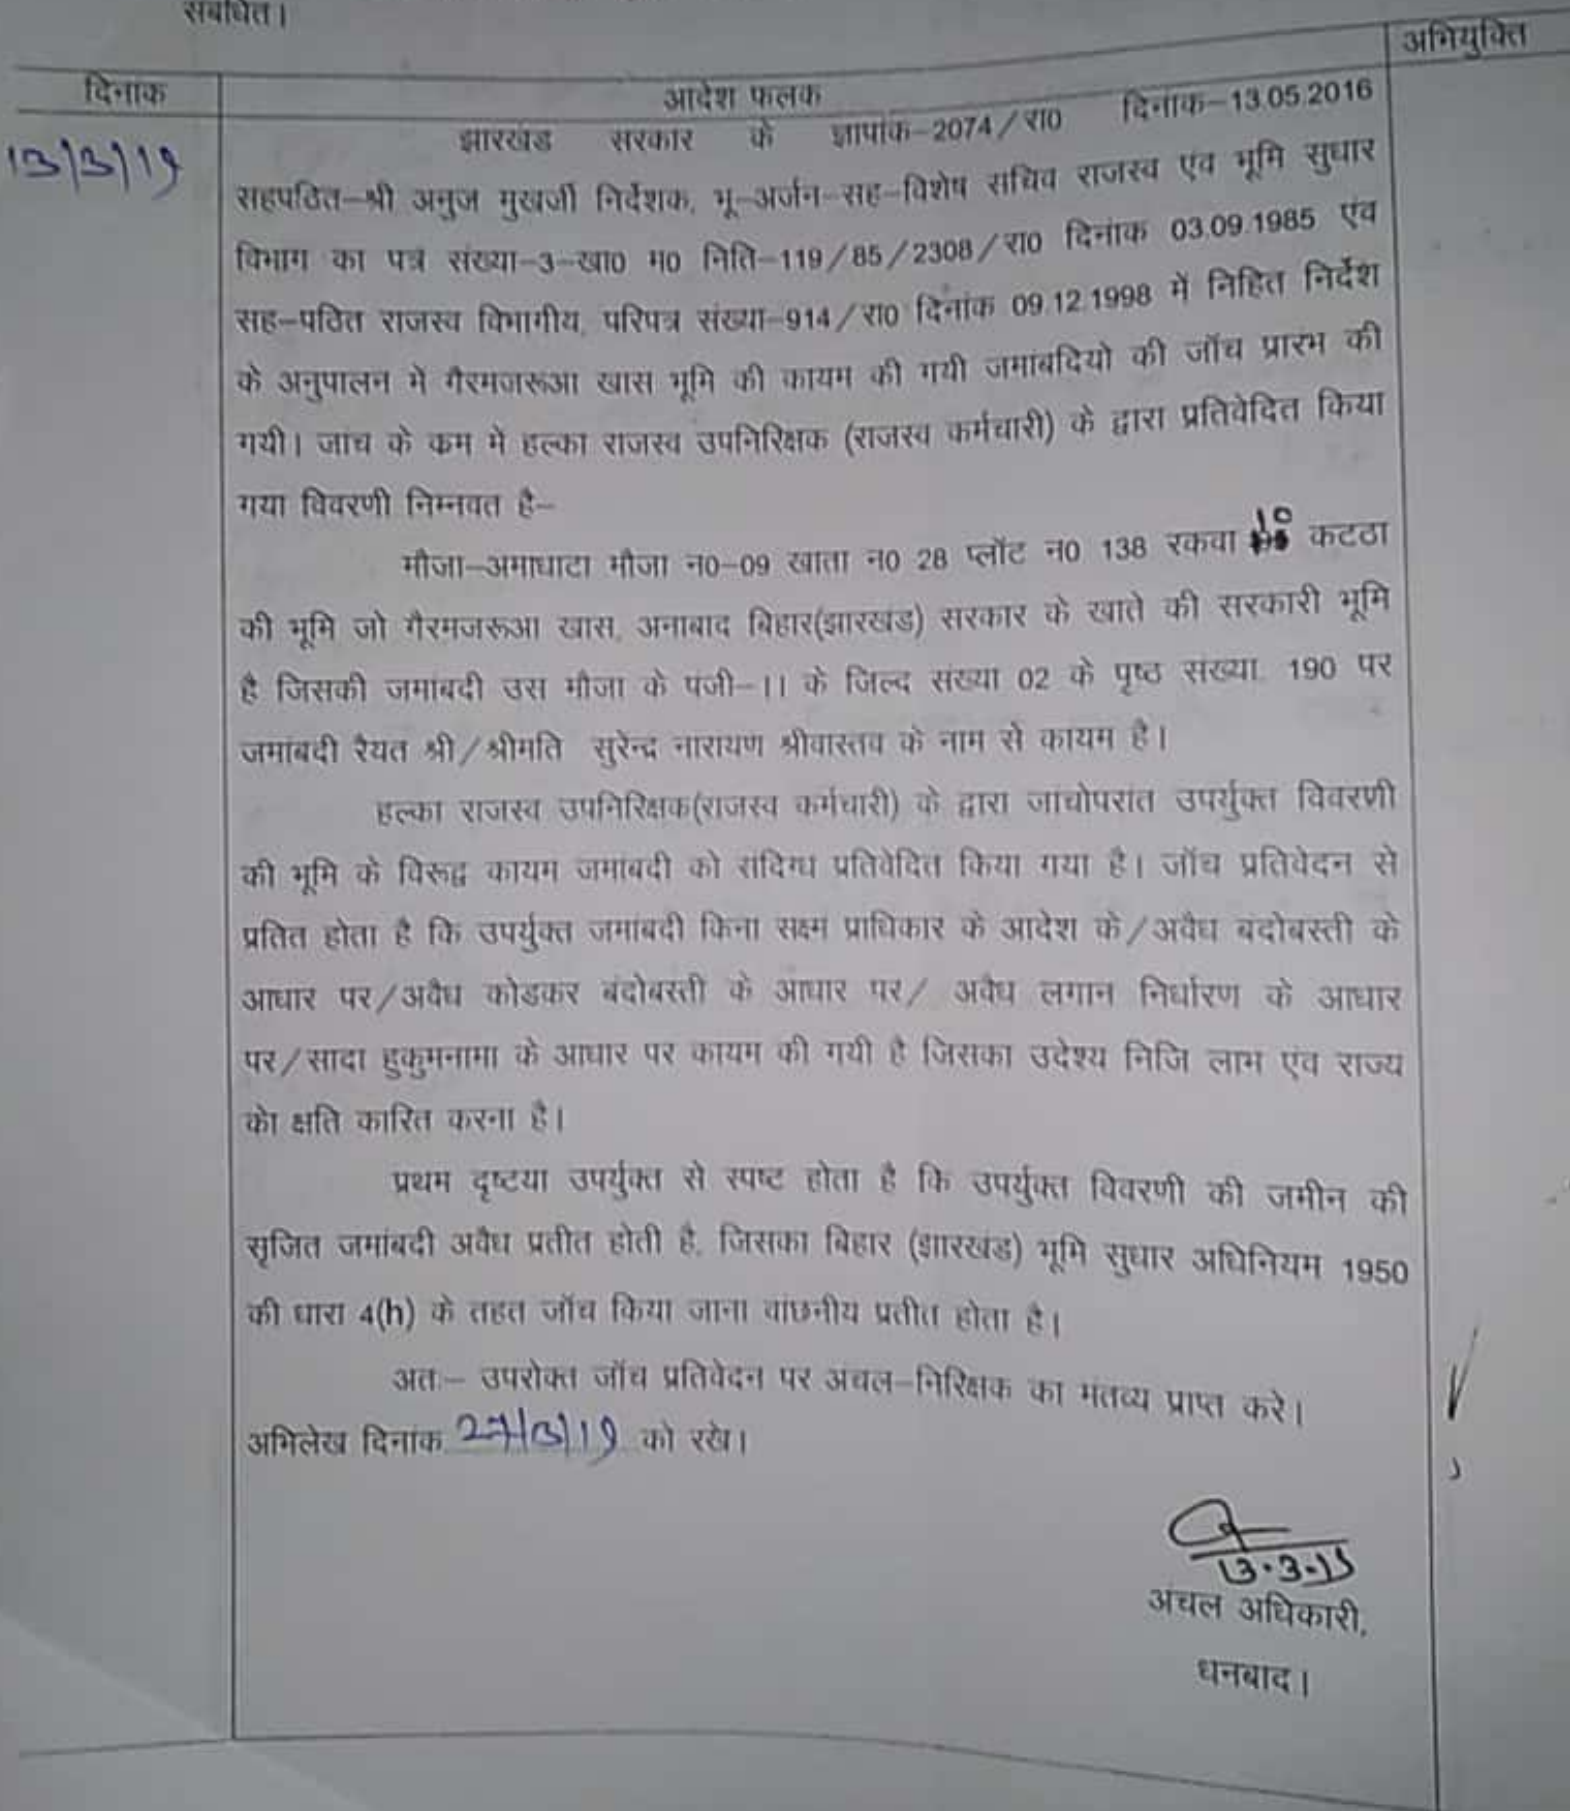 संबंधित।
अभियुक्ति
दिनांक आदेश फलक
13/3/19
झारखंड सरकार के ज्ञापांक-2074/रा0 दिनांक-13.05.2016
सहपठित-श्री अनुज मुखर्जी निर्देशक, भू-अर्जन-सह-विशेष सचिव राजस्व एंव भूमि सुधार
विभाग का पत्र संख्या-3-खा0 म0 निति-119/85/2308/रा0 दिनांक 03.09.1985 एंव
सह-पठित राजस्व विभागीय, परिपत्र संख्या-914/रा0 दिनांक 09.12.1998 में निहित निर्देश
के अनुपालन मे गैरमजरूआ खास भूमि की कायम की गयी जमांबदियो की जॉच प्रारंभ की
गयी। जांच के कम मे हल्का राजस्व उपनिरिक्षक (राजस्व कर्मचारी) के द्वारा प्रतिवेदित किया
गया विवरणी निम्नवत है-
मौजा-अमाघाटा मौजा न0-09 खाता न0 28 प्लॉट न0 138 रकवा 10 कटठा
की भूमि जो गैरमजरूआ खास, अनाबाद बिहार(झारखंड) सरकार के खाते की सरकारी भूमि
है जिसकी जमांबदी उस मौजा के पंजी-।। के जिल्द संख्या 02 के पृष्ठ संख्या. 190 पर
जमांबदी रैयत श्री/श्रीमति सुरेन्द्र नारायण श्रीवास्तव के नाम से कायम है।
हल्का राजस्व उपनिरिक्षक(राजस्व कर्मचारी) के द्वारा जांचोपरांत उपर्युक्त विवरणी
की भूमि के विरूद्व कायम जमांबदी को संदिग्ध प्रतिवेदित किया गया है। जॉच प्रतिवेदन से
प्रतित होता है कि उपर्युक्त जमांबदी किना सक्ष्म प्राधिकार के आदेश के/अवैध बंदोबस्ती के
आधार पर/अवैध कोडकर बंदोबस्ती के आधार पर/ अवैध लगान निर्धारण के आधार
पर/सादा हुकुमनामा के आधार पर कायम की गयी है जिसका उदेश्य निजि लाभ एंव राज्य
को क्षति कारित करना है।
प्रथम दृष्टया उपर्युक्त से स्पष्ट होता है कि उपर्युक्त विवरणी की जमीन की
सृजित जमांबदी अवैध प्रतीत होती है, जिसका बिहार (झारखंड) भूमि सुधार अधिनियम 1950
की धारा 4(h) के तहत जॉच किया जाना वांछनीय प्रतीत होता है।
अतः- उपरोक्त जॉच प्रतिवेदन पर अंचल-निरिक्षक का मंतव्य प्राप्त करे।
अभिलेख दिनांक 27/3/19 को रखे।
13.3.19
अंचल अधिकारी,
धनबाद।